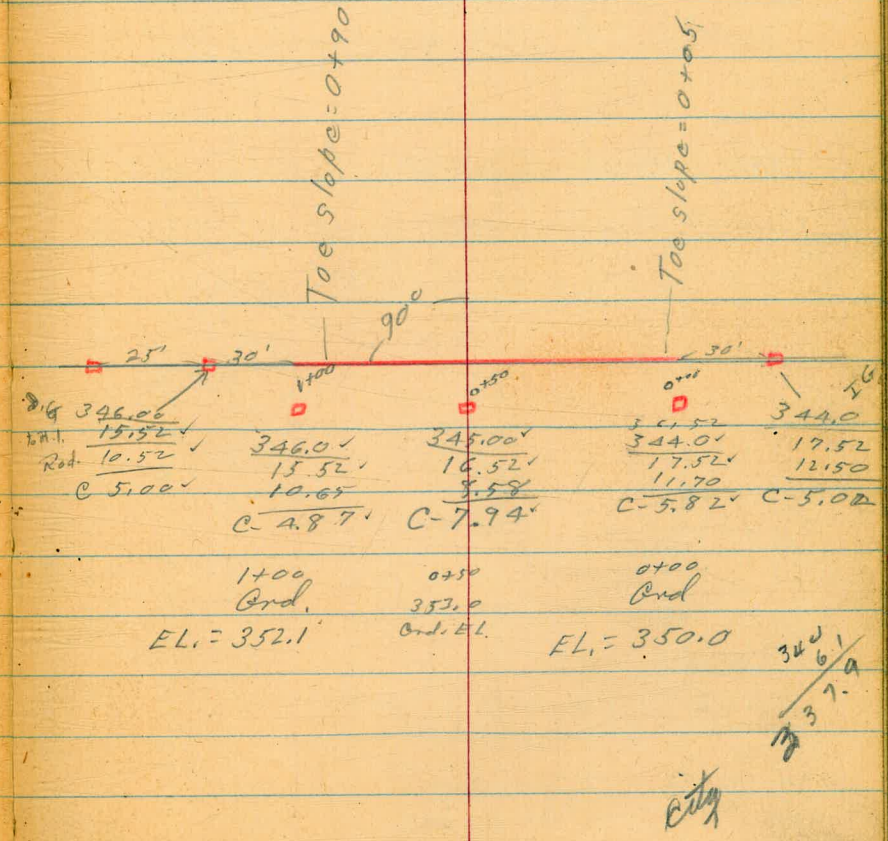 Toe slope = 0+90
Toe slope = 0+05
90°
25'
30'
30'
1+00
0+50
0+00
I.G.
346.00
15.52 ✓
Rod. 10.52 ✓
C 5.00 ✓
346.0 ✓
15.52 ✓
10.65
C- 4.87 ✓
345.00 ✓
16.52 ✓
8.58
C- 7.94 ✓
361.52
344.0 ✓
17.52 ✓
11.70
C- 5.82 ✓
344.0
17.52
12.50
C- 5.02
1+00
Grd.
EL. = 352.1
0+50
353.0
Grd. EL.
0+00
Grd
EL. = 350.0
344
6.1
337.9
city